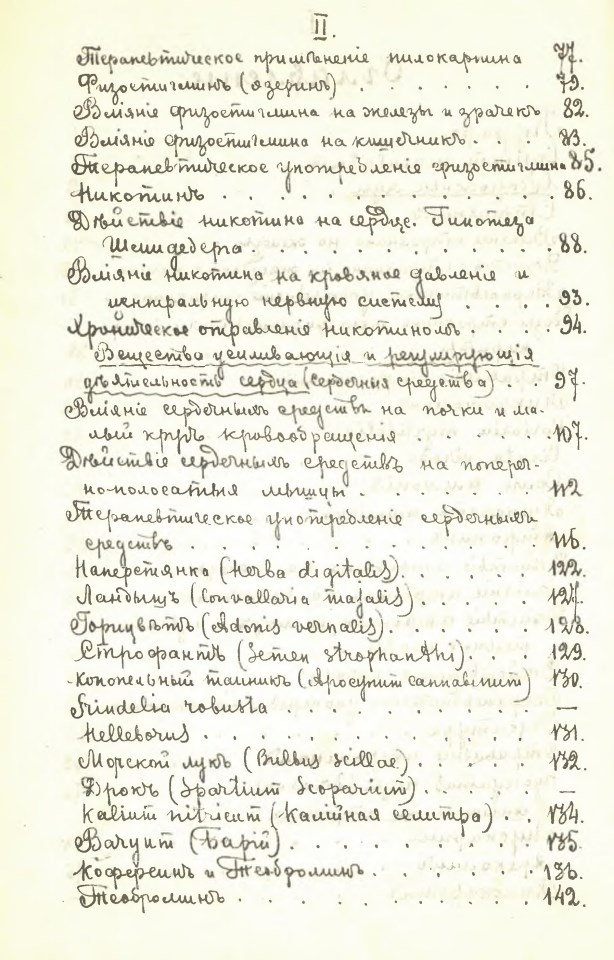 II.
Терапевтическое примѣненіе пилокарпина 77.
Физостигминъ (эзеринъ) . . . . . . . 79.
Вліяніе физостигмина на железы и зрачекъ 82.
Вліяніе физостигмина на кишечникъ . . . 83.
Терапевтическое употребленіе физостигмина 85.
Никотинъ . . . . . . . . . . . . 86.
Дѣйствіе никотина на сердце. Гипотеза
Шмидеберга . . . . . . . . . . . 88.
Вліяніе никотина на кровяное давленіе и
центральную нервную систему . . . . 93.
Хроническое отравленіе никотиномъ . . . . 94.
Вещества усиливающія и регулирующія
дѣятельность сердца (сердечныя средства) . . 97.
Вліяніе сердечныхъ средствъ на почки и ма-
лый кругъ кровообращенія . . . . . . 107.
Дѣйствіе сердечныхъ средствъ на попереч-
но-полосатыя мышцы . . . . . . . 112
Терапевтическое употребленіе сердечныхъ
средствъ . . . . . . . . . . . . . 116.
Наперстянка (Herba digitalis) . . . . . 122.
Ландышъ (Convallaria majalis) . . . . . 127.
Горицвѣтъ (Adonis vernalis) . . . . . . 128.
Строфантъ (Semen strophanthi) . . . 129.
Конопельный танникъ (Apocynum cannabinum) 130.
Grindelia robusta . . . . . . . . . . —
Helleborus . . . . . . . . . . . . . 131.
Морской лукъ (Bulbus Scillae) . . . . . 132.
Дрокъ (Spartium Scoparium) . . . . . —
Kalium nitricum (Калійная селитра) . . 134.
Baryum (Барій) . . . . . . . . . 135.
Кофеинъ и Теоброминъ . . . . . . 136.
Теоброминъ . . . . . . . . . . . 142.